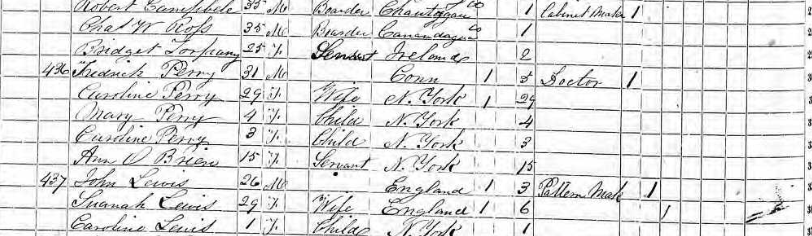 Robert Campbell 35 M Boarder Chautauqua Co 1 Cabinet Maker 1
Chas W Ross 35 M Boarder Canandagua Co 1
Bridget 25 F Servant Ireland 2
436 Fredrick Perry 31 M Conn 1 5 Doctor 1
Caroline Perry 29 F Wife N. York 1 29
Mary Perry 4 F Child N. York 4
Caroline Perry 3 F Child N. York 3
Ann O Brien 15 F Servant N. York 15
437 John Lewis 26 M England 1 3 Pattern Mak 1
Lewis 29 F Wife England 1 6 1
Caroline Lewis 1 F Child N. York 1